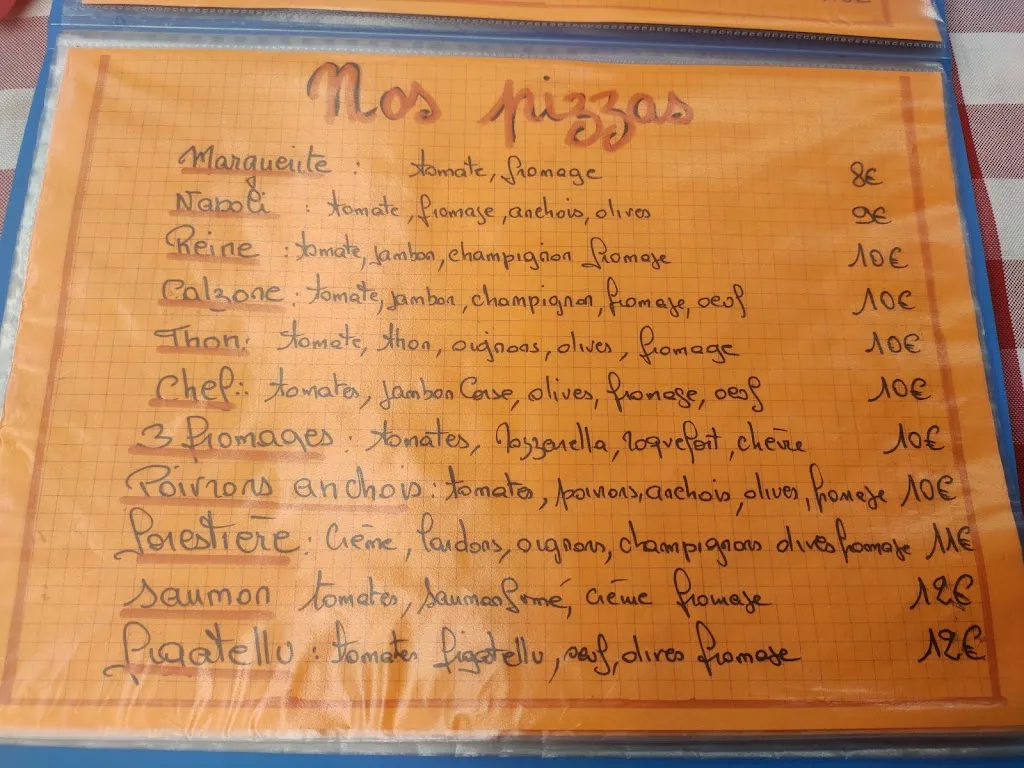 Nos pizzas
Marguerite : tomate, fromage 8€
Napoli : tomate, fromage, anchois, olives 9€
Reine : tomate, jambon, champignon fromage 10€
Calzone : tomate, jambon, champignon, fromage, oeuf 10€
Thon : tomate, thon, oignons, olives, fromage 10€
Chef : tomates, jambon Corse, olives, fromage, oeuf 10€
3 fromages : tomates, Mozzarella, roquefort, chèvre 10€
Poivrons anchois : tomates, poivrons, anchois, olives, fromage 10€
Forestière : Crème, lardons, oignons, champignons olives fromage 11€
Saumon tomates, saumon fumé, crème fromage 12€
Figatellu : tomates figatellu, oeuf, olives fromage 12€